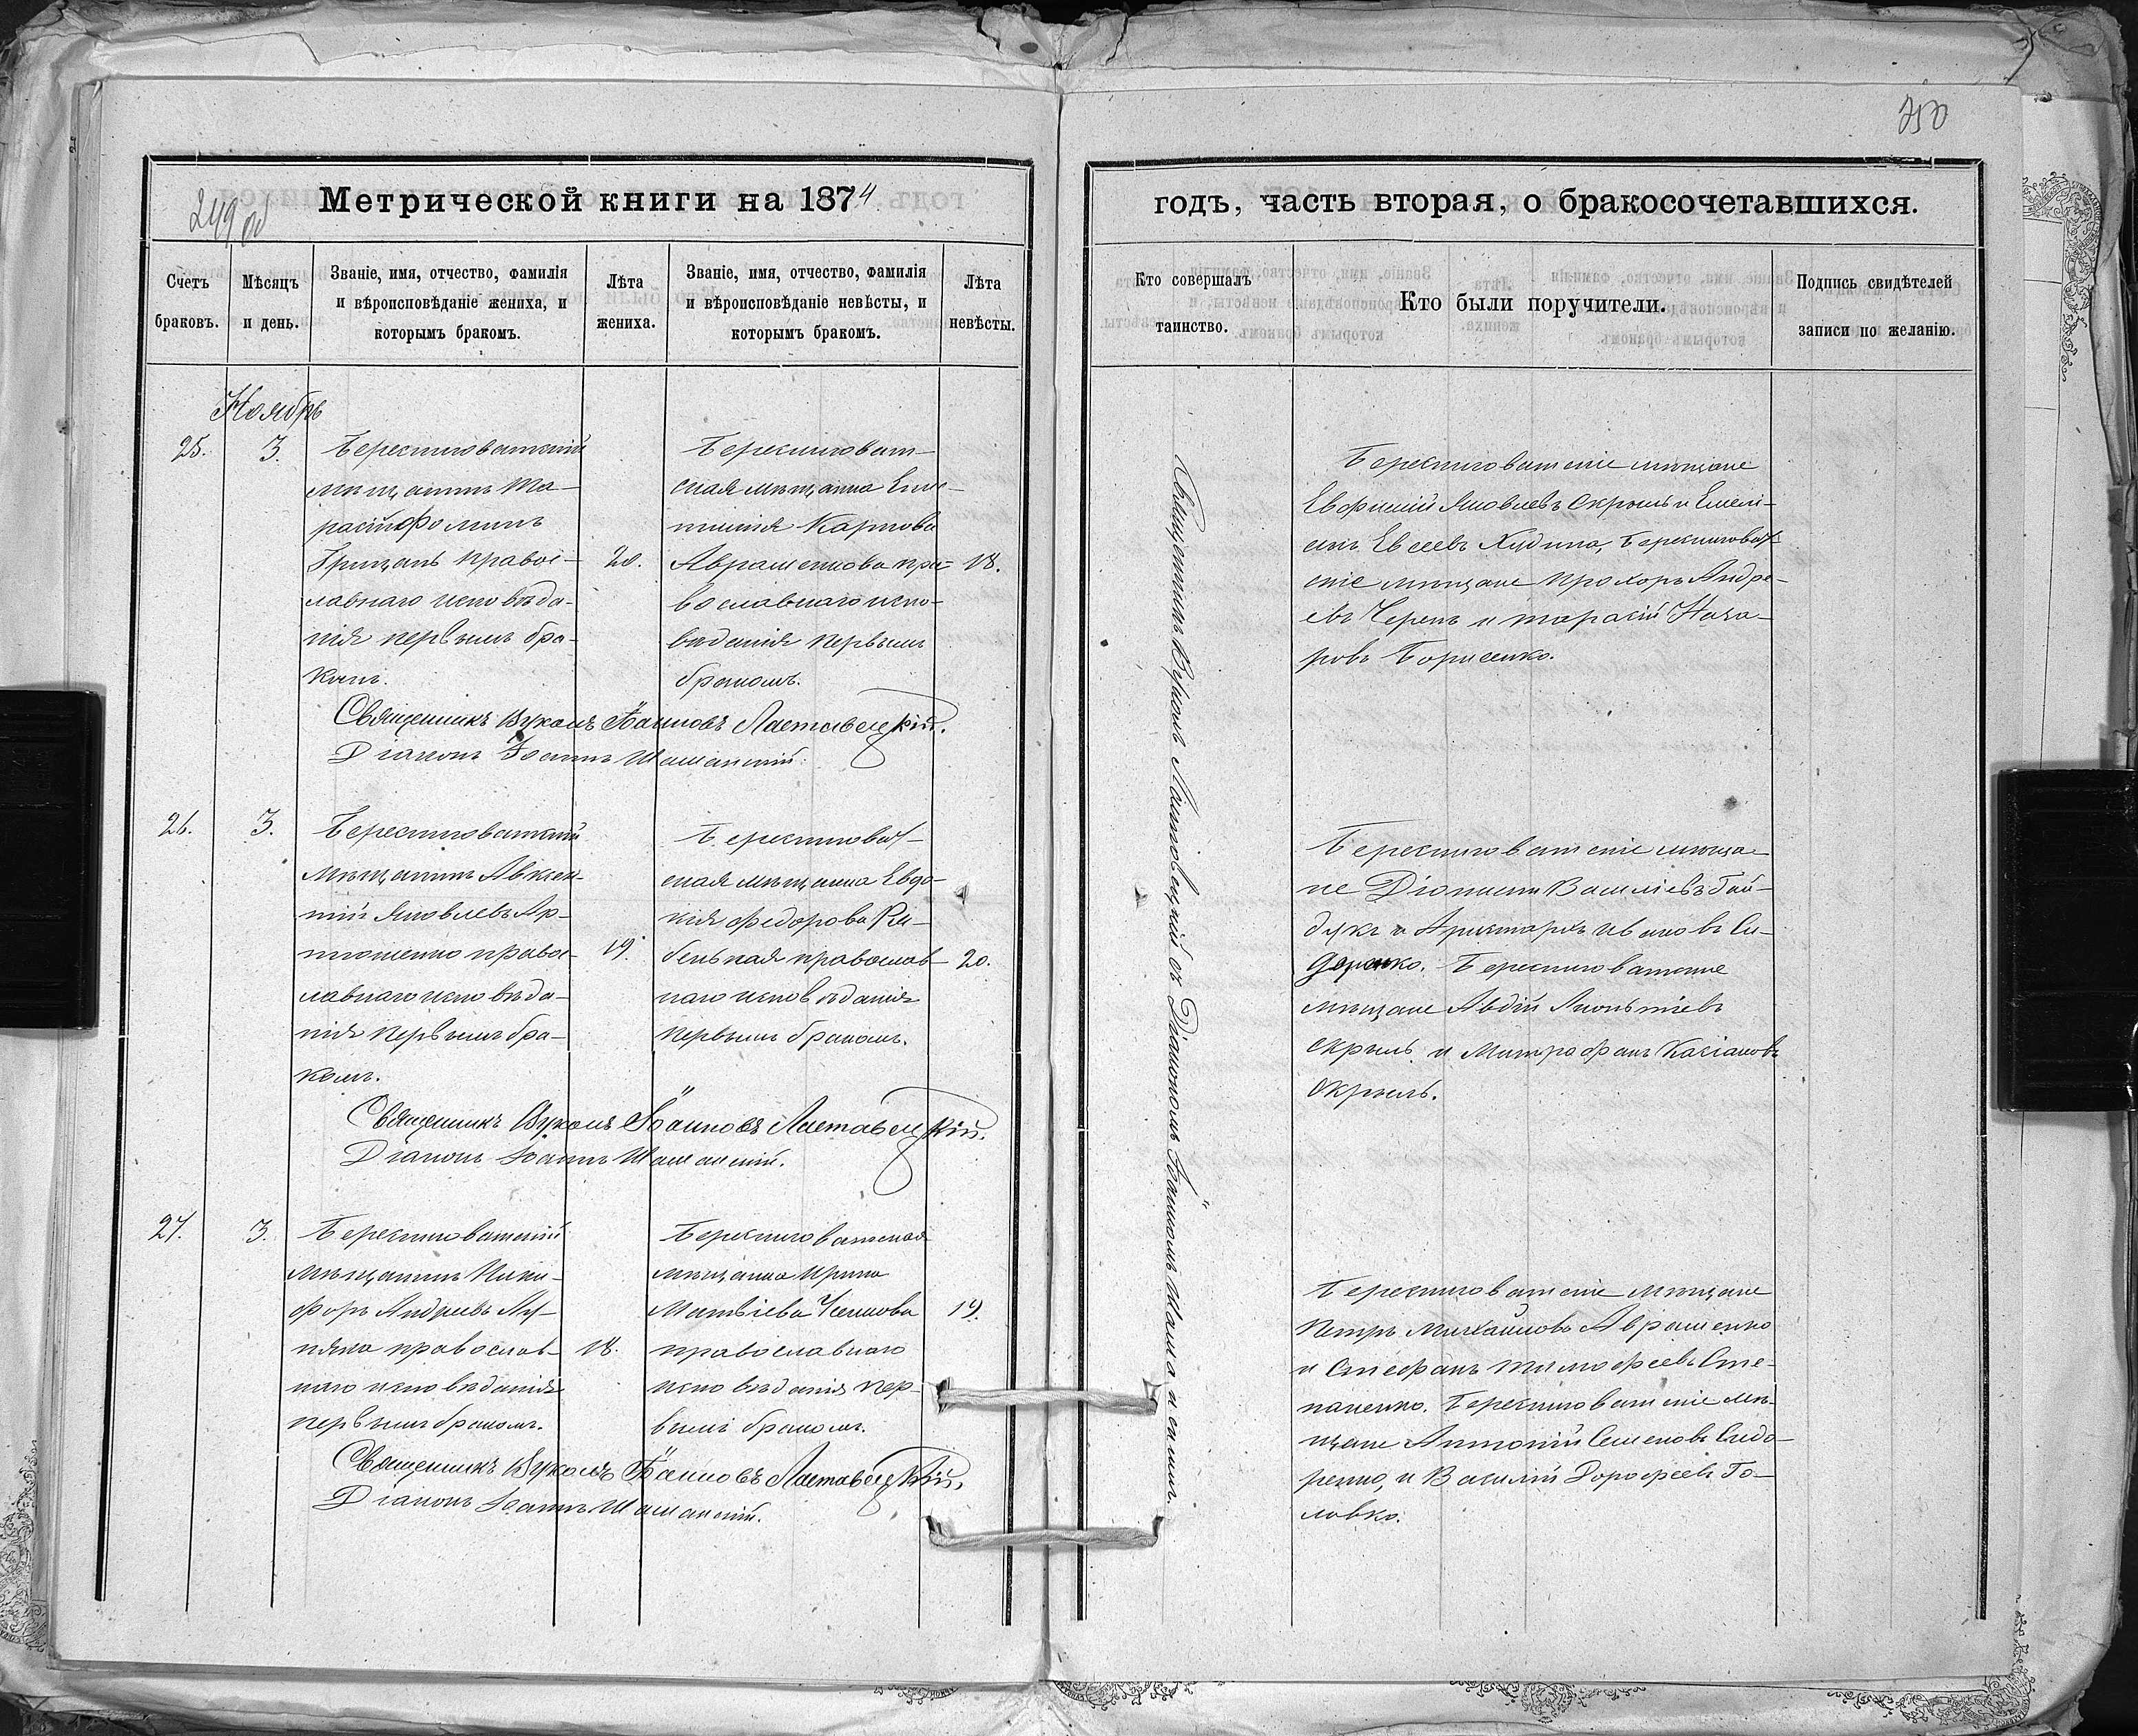 249 об
Метрической книги на 1874
Счетъ браковъ.
Мѣсяцъ и день.
Званіе, имя, отчество, фамилія
и вѣроисповѣданіе жениха, и
которымъ бракомъ.
Лѣта жениха.
Званіе, имя, отчество, фамилія
и вѣроисповѣданіе невѣсты, и
которымъ бракомъ.
Лѣта невѣсты.
Ноябрь
25.
3.
Берестоватскій
мѣщанинъ Та-
расій Фоминъ
Грицанъ правос-
лавнаго исповѣда-
нія первымъ бра-
комъ.
20.
Берестоват-
ская мѣщанка
Карпова
Авраменкова пра-
вославнаго испо-
вѣданія первымъ
бракомъ.
18.
Священникъ Вуколъ Іоанновъ Ластавецкій.
Діаконъ Іоаннъ
26.
3.
Берестоватскій
мѣщанинъ Авксен-
тій Яковлевъ Ар-
тюшенко правос-
лавнаго исповѣда-
нія первымъ бра-
комъ.
19.
Берестоват-
ская мѣщанка Евдо-
кія Федорова
православ-
наго исповѣданія
первымъ бракомъ.
20.
Священникъ Вуколъ Іоанновъ Ластавецкій.
Діаконъ Іоаннъ
27.
3.
Берестоватскій
мѣщанинъ Ники-
форъ Андреевъ Лу-
пяка православ-
наго исповѣданія
первымъ бракомъ.
18.
Берестоватская
мѣщанка Ирина
Матвіева
православнаго
исповѣданія пер-
вымъ бракомъ.
19.
Священникъ Вуколъ Іоанновъ Ластавецкій.
Діаконъ Іоаннъ
250
годъ, часть вторая, о бракосочетавшихся.
Кто совершалъ таинство.
Кто были поручители.
Подпись свидѣтелей
записи по желанію.
Священникъ Вуколъ Ластавецкій съ Діакономъ Іоанномъ
Берестоватскіе мѣщане
Евфимій Яковлевъ Скрыль и Емели-
анъ Евсеевъ Худина, Берестоват-
скіе мѣщане Прохоръ Андре-
евъ Черепъ и Тарасій Наза-
ровъ Борисенко.
Берестоватскіе мѣща-
не Діонисій Василіевъ Гай-
дукъ и Аристархъ Ивановъ Си-
доренко. Берестоватскіе
мѣщане Авдій Леонтіевъ
Скрыль и Митрофанъ Касіановъ
Скрыль.
Берестоватскіе мѣщане
Петръ Михайловъ Авраменко
и Стефанъ Тимофеевъ Сте-
паненко. Берестоватскіе мѣ-
щане Антоній Семеновъ Сидо-
ренко, и Василій Дорофеевъ Го-
ловко.